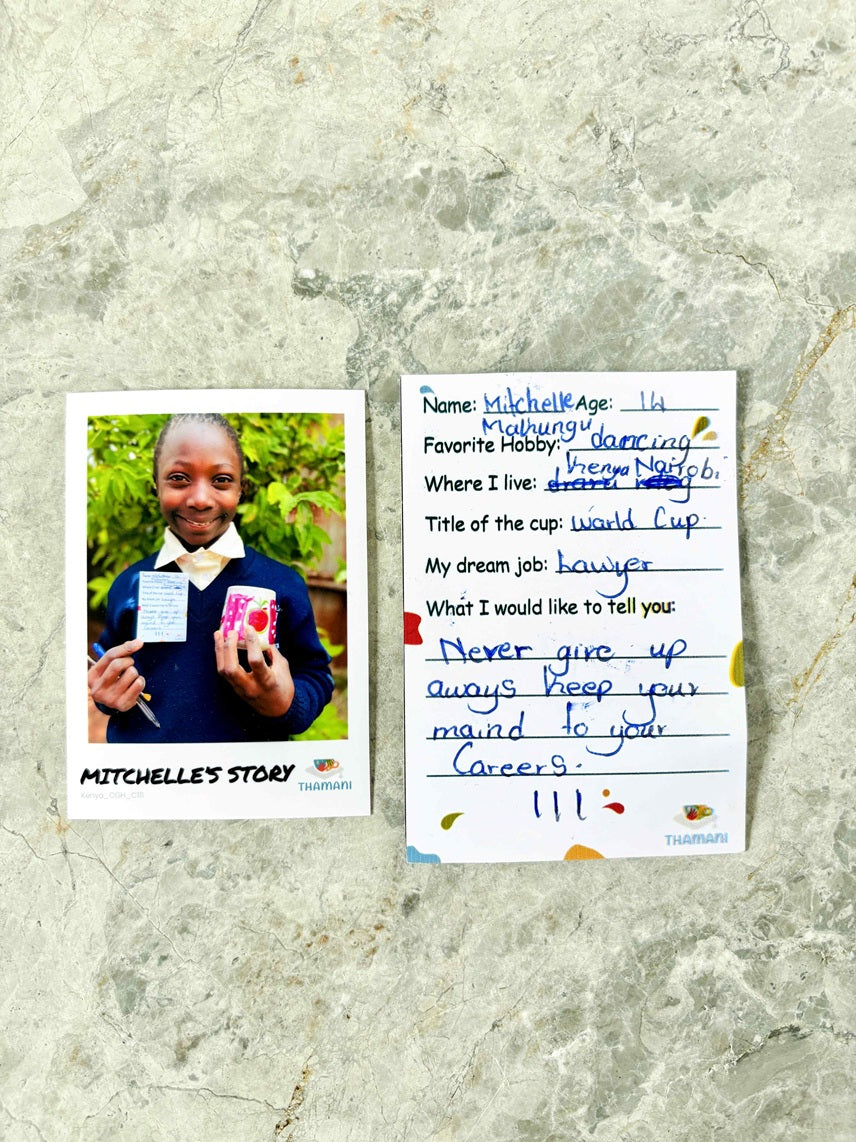 MITCHELLE'S STORY
THAMANI
Kenya_CGH_C15
Name: Mitchelle Age: 14
Mathungu
Favorite Hobby: dancing
Kenya Nairobi
Where I live:
Title of the cup: World Cup.
My dream job: Lawyer
What I would like to tell you:
Never give up
aways keep your
maind to your
Careers.
111
THAMANI